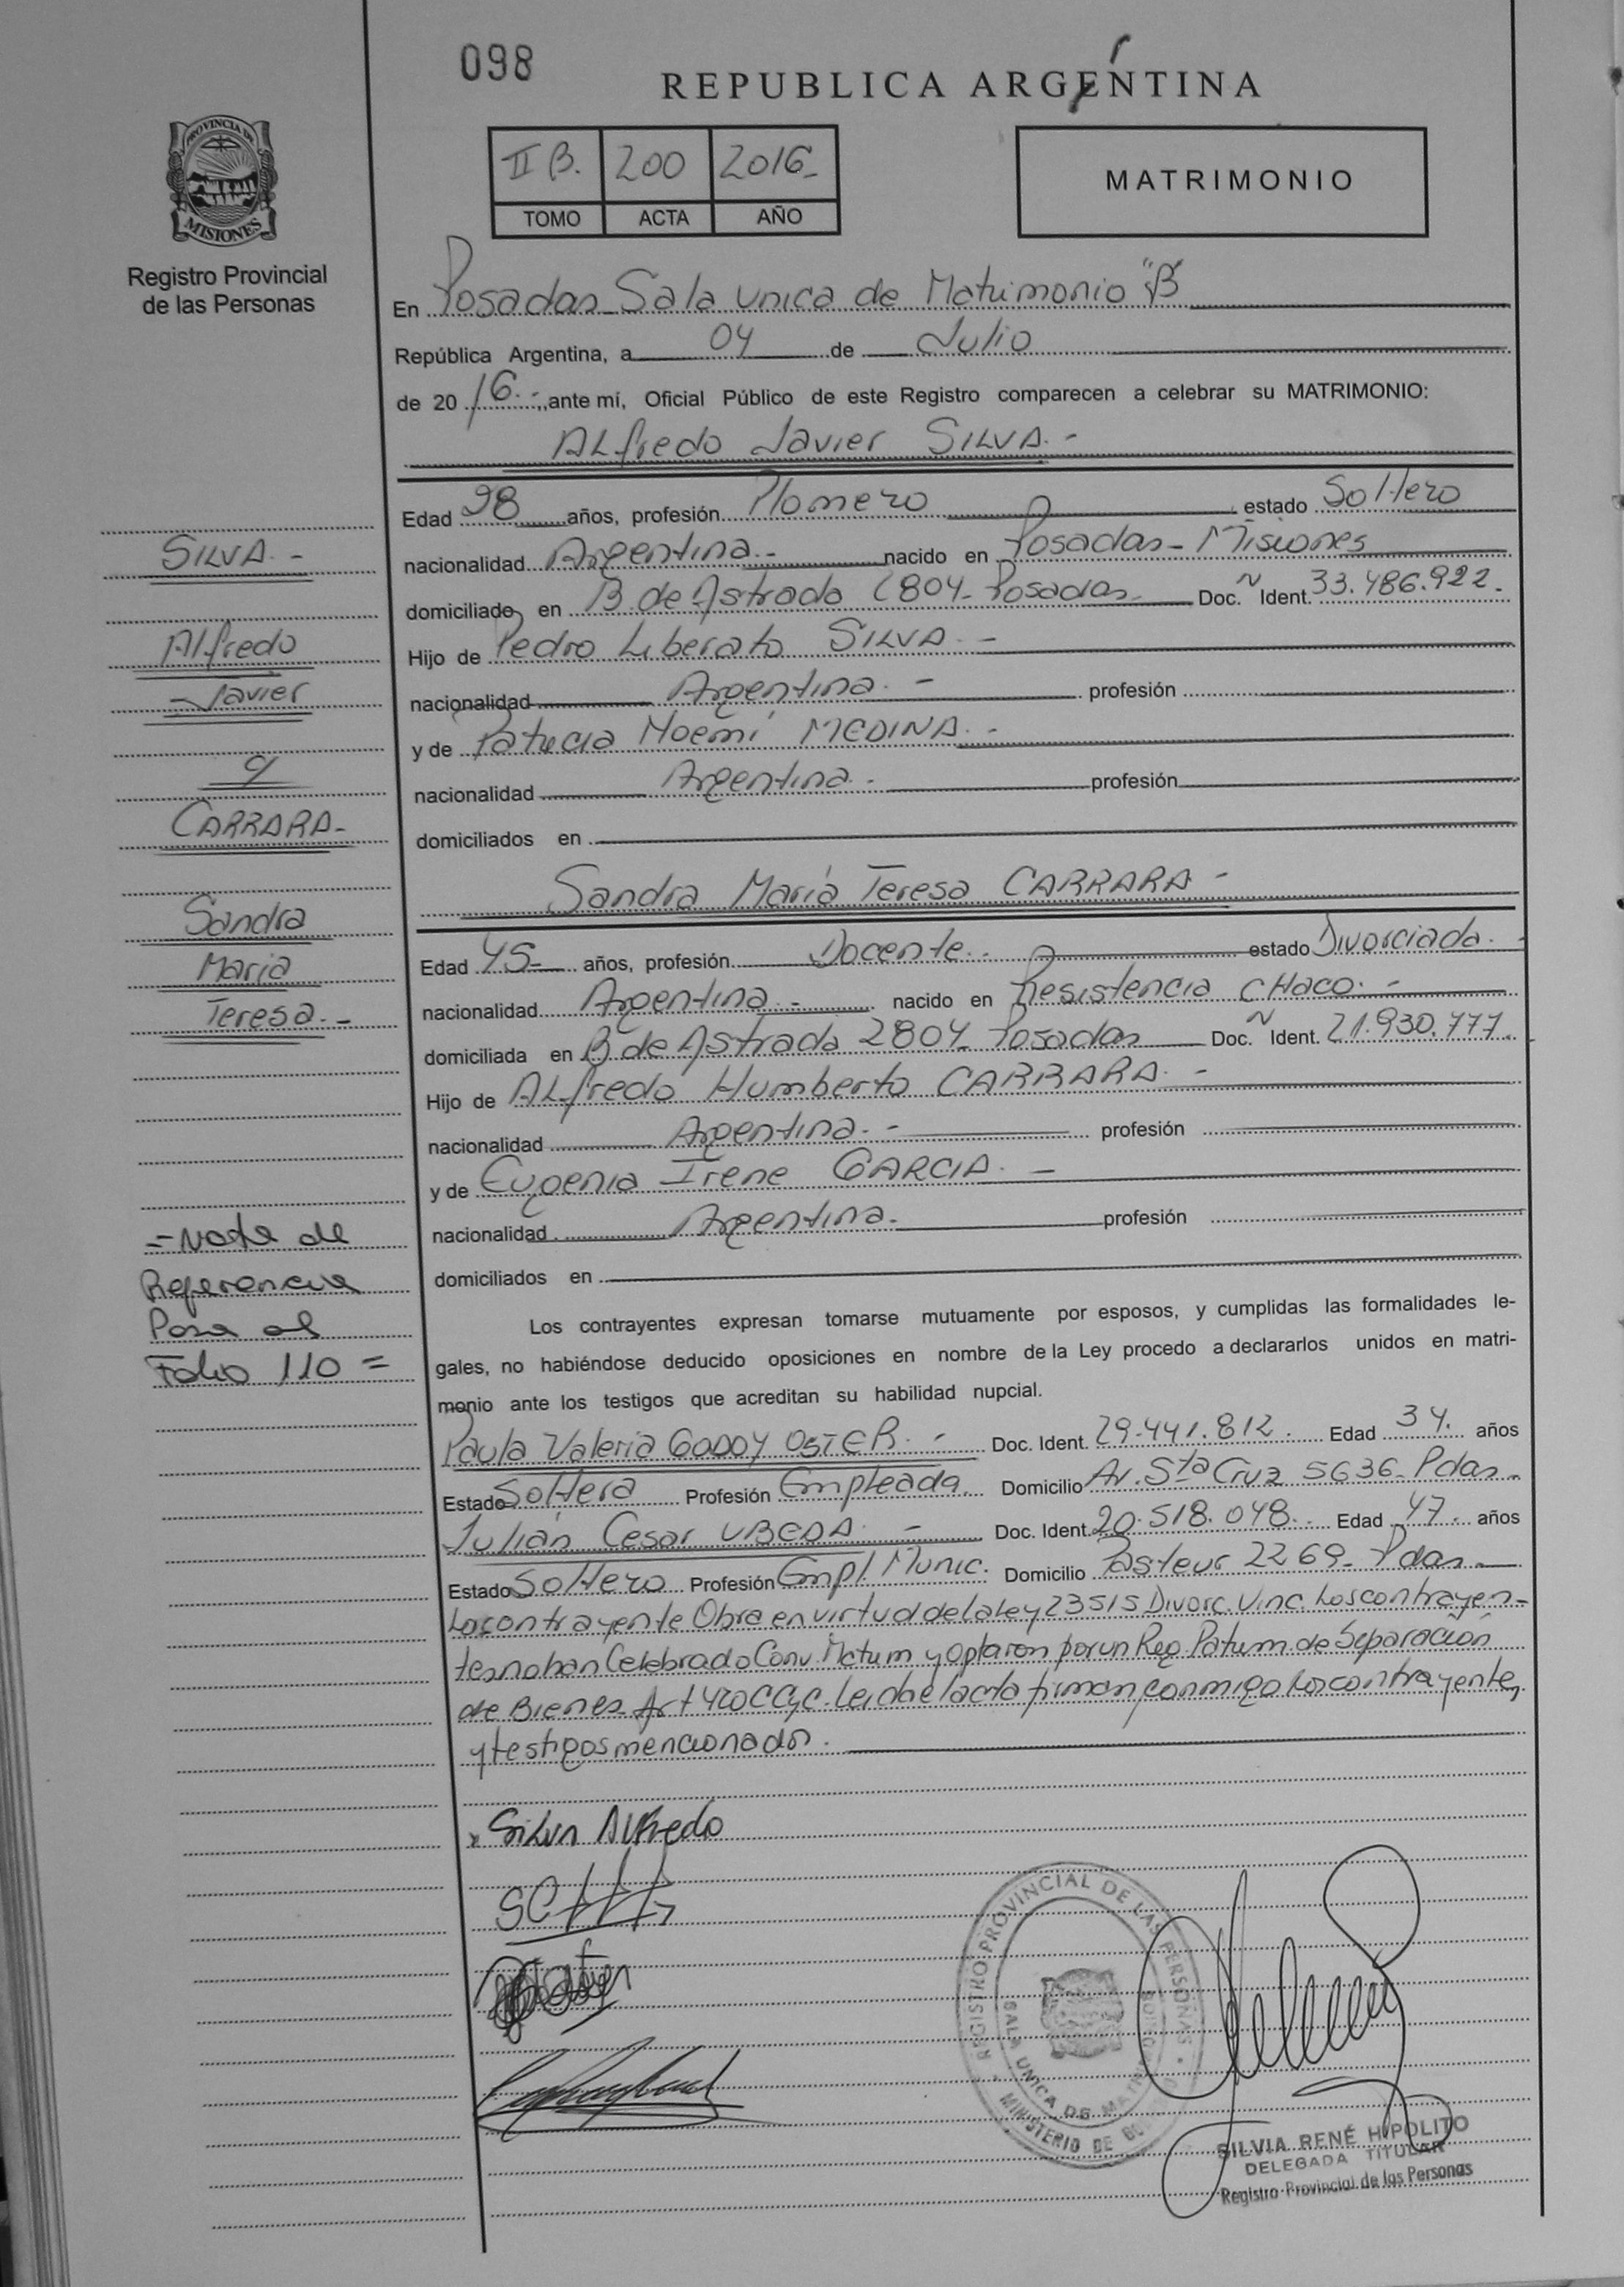 098
REPUBLICA ARGENTINA
PROVINCIA DE
MISIONES
Registro Provincial
de las Personas
II B. 200 2016-
TOMO ACTA AÑO
MATRIMONIO
En Posadas Sala Unica de Matrimonio "B"
República Argentina, a 04 de Julio
de 2016.-, ante mí, Oficial Público de este Registro comparecen a celebrar su MATRIMONIO:
ALfredo Javier SILVA.-
Edad 28 años, profesión Plomero estado Soltero
nacionalidad Argentina.- nacido en Posadas - Misiones
domiciliado en B. de Astrada 2804- Posadas Doc. Ident. 33.486.922.
Hijo de Pedro Liberato SILVA.-
nacionalidad Argentina.- profesión
y de Patricia Noemí MEDINA.-
nacionalidad Argentina.- profesión
domiciliados en
Sandra María Teresa CARRARA-
Edad 45- años, profesión Docente.- estado Divorciada.-
nacionalidad Argentina.- nacido en Resistencia CHaco.-
domiciliada en B de Astrada 2804- Posadas Doc. Ident. 21.930.777.
Hijo de ALfredo Humberto CARRARA.-
nacionalidad Argentina.- profesión
y de Eugenia Irene GARCIA.-
nacionalidad Argentina.- profesión
domiciliados en
SILVA.-
Alfredo
Javier
c/
CARRARA-
Sandra
Maria
Teresa.-
- Nota de
Referencia
Pasa al
Folio 110 =
Los contrayentes expresan tomarse mutuamente por esposos, y cumplidas las formalidades le-
gales, no habiéndose deducido oposiciones en nombre de la Ley procedo a declararlos unidos en matri-
monio ante los testigos que acreditan su habilidad nupcial.
Paula Valeria GODOY OSTER.- Doc. Ident. 29.441.812. Edad 34. años
Estado Soltera Profesión Empleada. Domicilio Av. Sta Cruz 5636- Pdas-
Julián Cesar UBEDA.- Doc. Ident. 20.518.048. Edad 47. años
Estado Soltero Profesión Empl. Munic. Domicilio Pasteur 2269- Pdas-
La contrayente Obra en virtud de la Ley 23515 Divorc. Vinc. Los contrayen-
tes no han Celebrado Conv. Matrim y optaron por un Reg. Patrim. de Separación
de Bienes Art 420 CCyC. Leida el acta firman conmigo los contrayentes
y testigos mencionados.
Silva Alfredo
REGISTRO PROVINCIAL DE LAS PERSONAS
SALA UNICA DE
MINISTERIO DE
SILVIA RENÉ HIPOLITO
DELEGADA TITULAR
Registro Provincial de las Personas